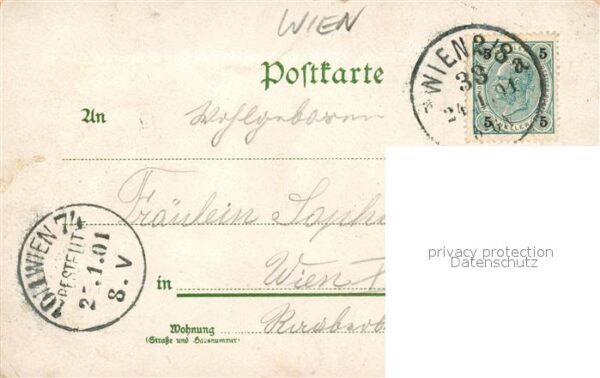 WIEN
Postkarte
WIEN 2/8 a
38
24.1.01
5 5
5 5
An Wohlgeboren
Fräulein Sophi
in Wien
Wohnung
(Straße und Hausnummer)
10/1 WIEN 74
BESTELLT
2-.1.01
8.V
privacy protection
Datenschutz